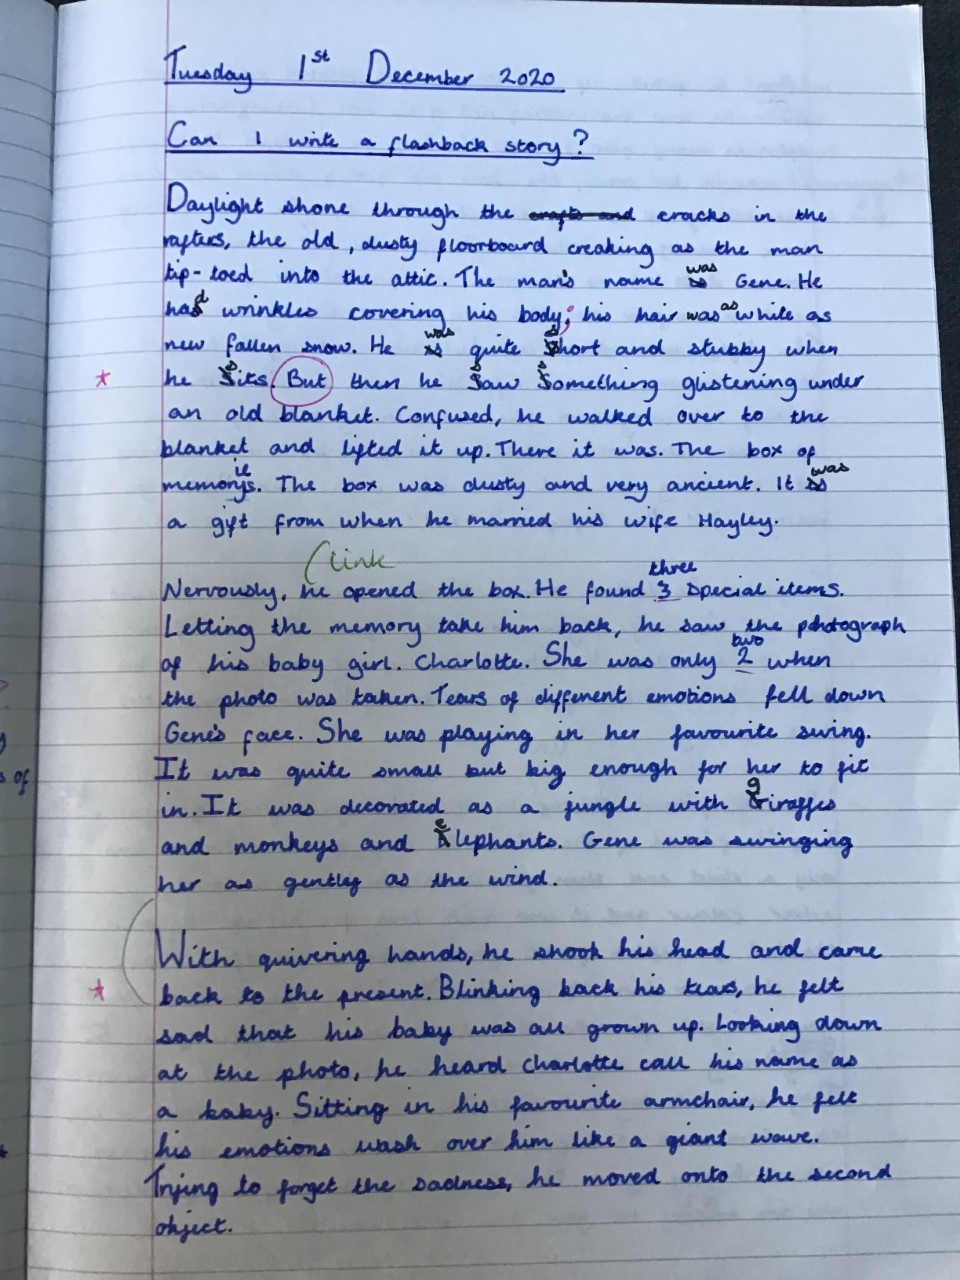 Tuesday 1st December 2020
Can I write a flashback story?
Daylight shone through the cracks in the
rafters, the old, dusty floorboard creaking as the man
tip-toed into the attic. The man's name was Gene. He
had wrinkles covering his body; his hair was as white as
new fallen snow. He was quite short and stubby when
* he sits. But then he saw something glistening under
an old blanket. Confused, he walked over to the
blanket and lifted it up. There it was. The box of
memories. The box was dusty and very ancient. It was
a gift from when he married his wife Hayley.
(link
three
Nervously, he opened the box. He found 3 special items.
Letting the memory take him back, he saw the photograph
two
of his baby girl. Charlotte. She was only 2 when
the photo was taken. Tears of different emotions fell down
Gene's face. She was playing in her favourite swing.
It was quite small but big enough for her to fit
in. It was decorated as a jungle with giraffes
and monkeys and elephants. Gene was swinging
her as gently as the wind.
With quivering hands, he shook his head and came
* back to the present. Blinking back his tears, he felt
sad that his baby was all grown up. Looking down
at the photo, he heard Charlotte call his name as
a baby. Sitting in his favourite armchair, he felt
his emotions wash over him like a giant wave.
Trying to forget the sadness, he moved onto the second
object.